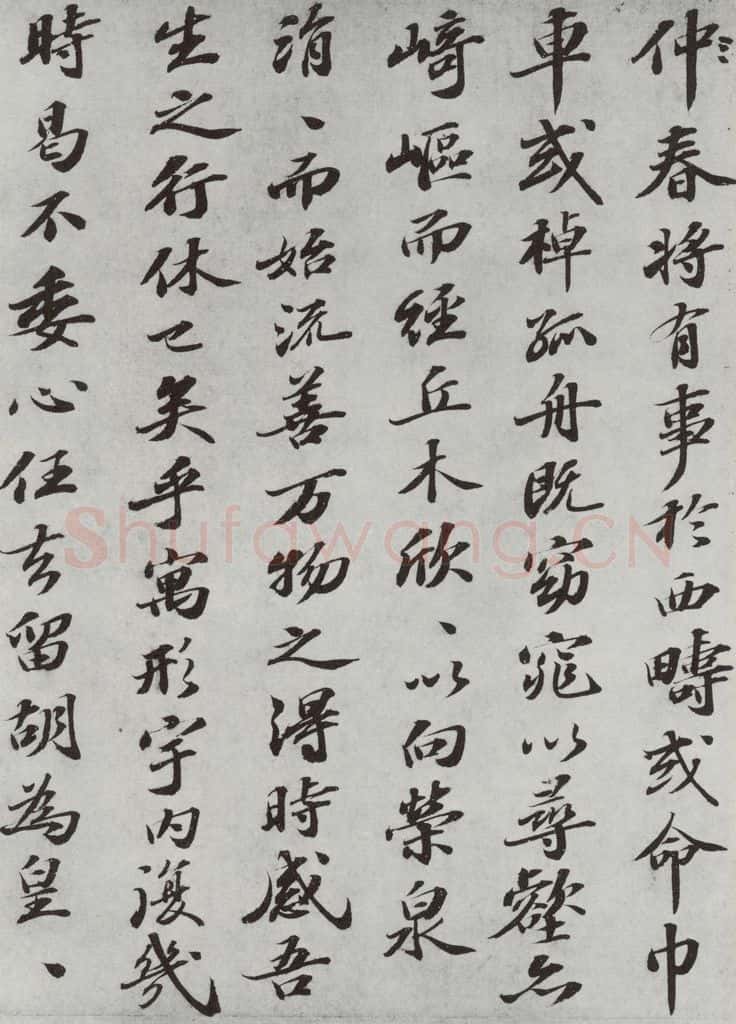 仲春将有事於西疇或命巾
車或棹孤舟既窈窕以尋壑亦
崎嶇而經丘木欣、以向榮泉
涓、而始流善万物之得時感吾
生之行休已矣乎寓形宇内復幾
時曷不委心任去留胡為皇、
Shufawang.CN